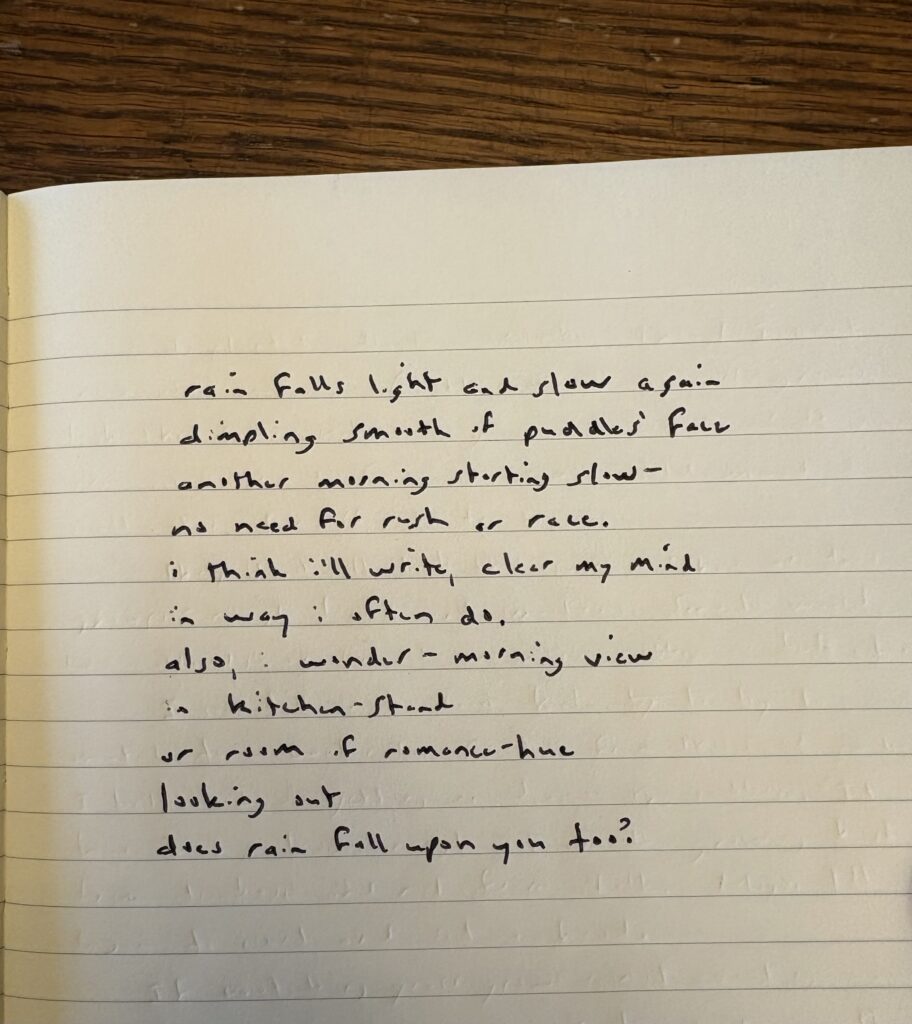 rain falls light and slow again
dimpling smooth of puddles' face
another morning starting slow-
no need for rush or race.
i think i'll write, clear my mind
in way i often do.
also, i wonder - morning view
in kitchen-stand
or room of romance-hue
looking out
does rain fall upon you too?